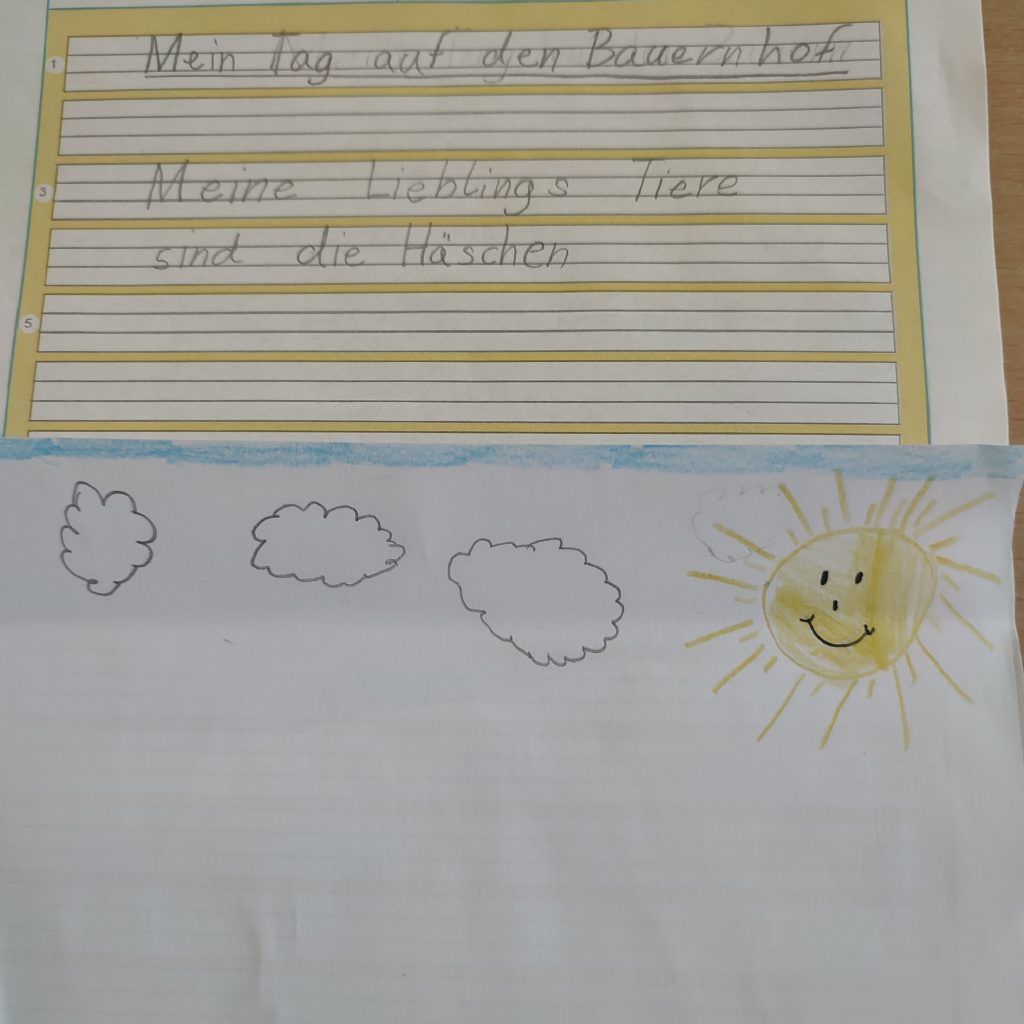 1 Mein Tag auf den Bauernhof
3 Meine Lieblings Tiere
sind die Häschen
5